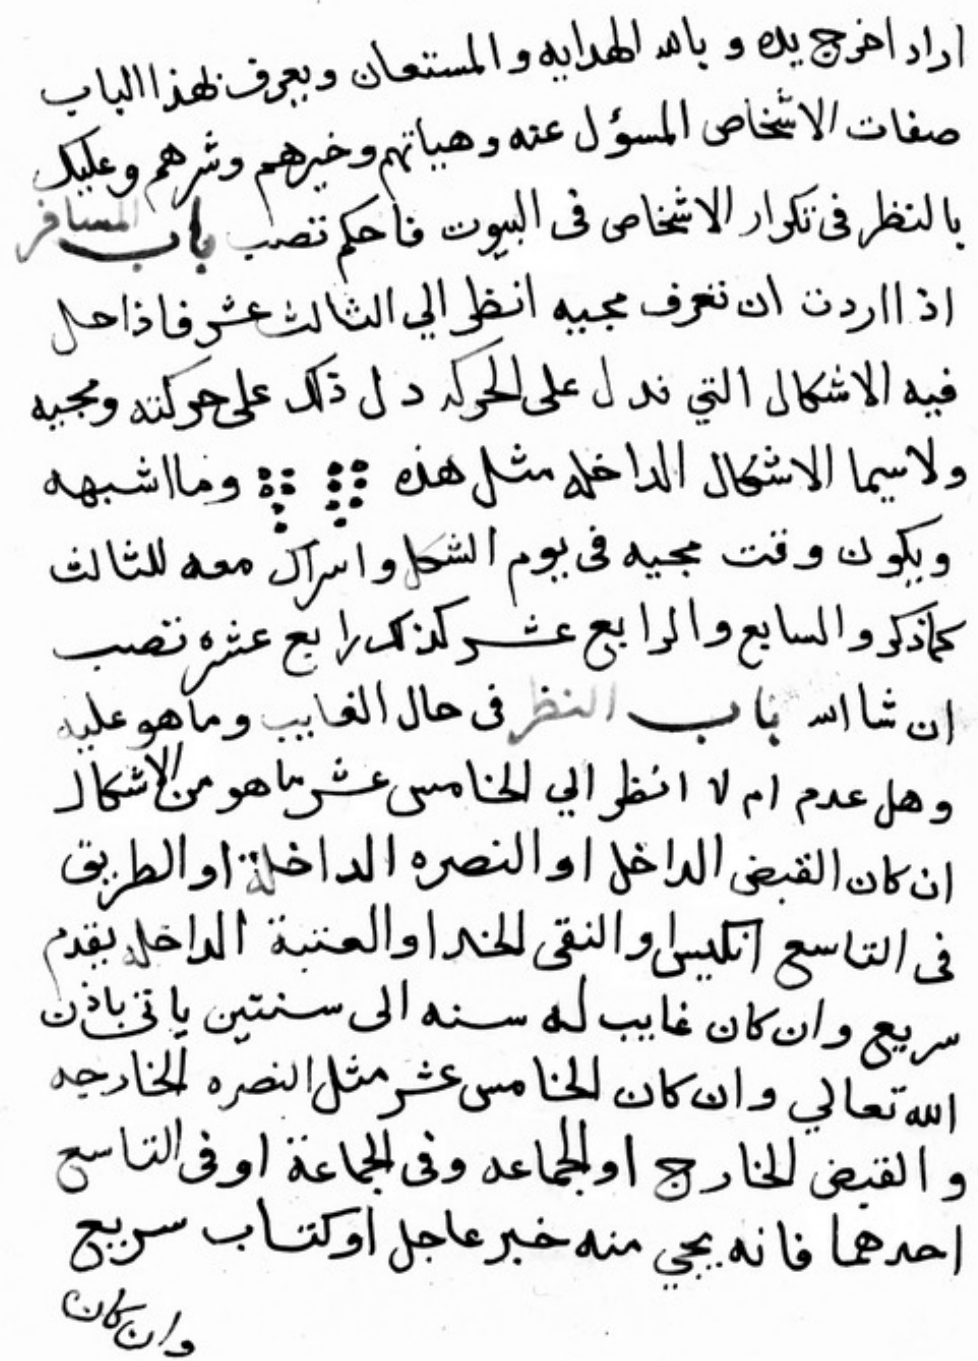 اراد اخرج يده و بالله الهدايه و المستعان ويعرف لهذا الباب
صفات الاشخاص المسؤل عنه وهياتهم وخيرهم وشرهم وعليك
بالنظر فى تكرار الاشخاص فى البيوت فاحكم تصب باب المسافر
اذا اردت ان تعرف مجيه انظر الي الثالث عشر فاذا حل
فيه الاشكال التي تدل على الحركه دل ذلك على حركته ومجيه
ولاسيما الاشكال الداخله مثل هذه وما اشبهه
ويكون وقت مجيه فى يوم الشكل و معه للثالث
كما ذكر و السابع والرابع عشر كذلك رابع عشره تصب
ان شا الله باب النظر فى حال الغايب وما هو عليه
وهل عدم ام لا انظر الي الخامس عشر ما هو من الاشكال
ان كان القبض الداخل او النصره الداخلة او الطريق
فى التاسع انكيس او النقى الخد او العتبة الداخله يقدم
سريع وان كان غايب له سنه الى سنتين ياتى باذن
الله تعالي وان كان الخامس عشر مثل النصره الخارجه
و القبض الخارج او الجماعه وفى الجماعة او فى التاسع
احدهما فانه يجي منه خبر عاجل او كتاب سريع
وان كان